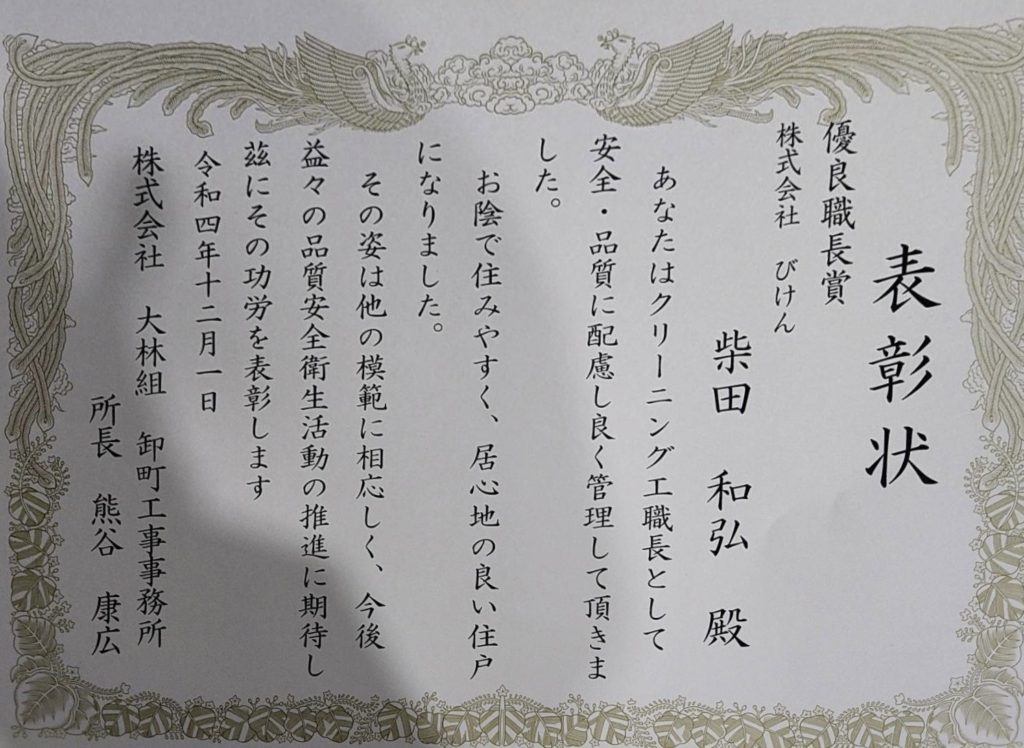 表彰状
優良職長賞
株式会社 びけん
柴田 和弘 殿
あなたはクリーニング工職長として
安全・品質に配慮し良く管理して頂きま
した。
お陰で住みやすく、居心地の良い住戸
になりました。
その姿は他の模範に相応しく、今後
益々の品質安全衛生活動の推進に期待し
茲にその功労を表彰します
令和四年十二月一日
株式会社 大林組 卸町工事事務所
所長 熊谷 康広